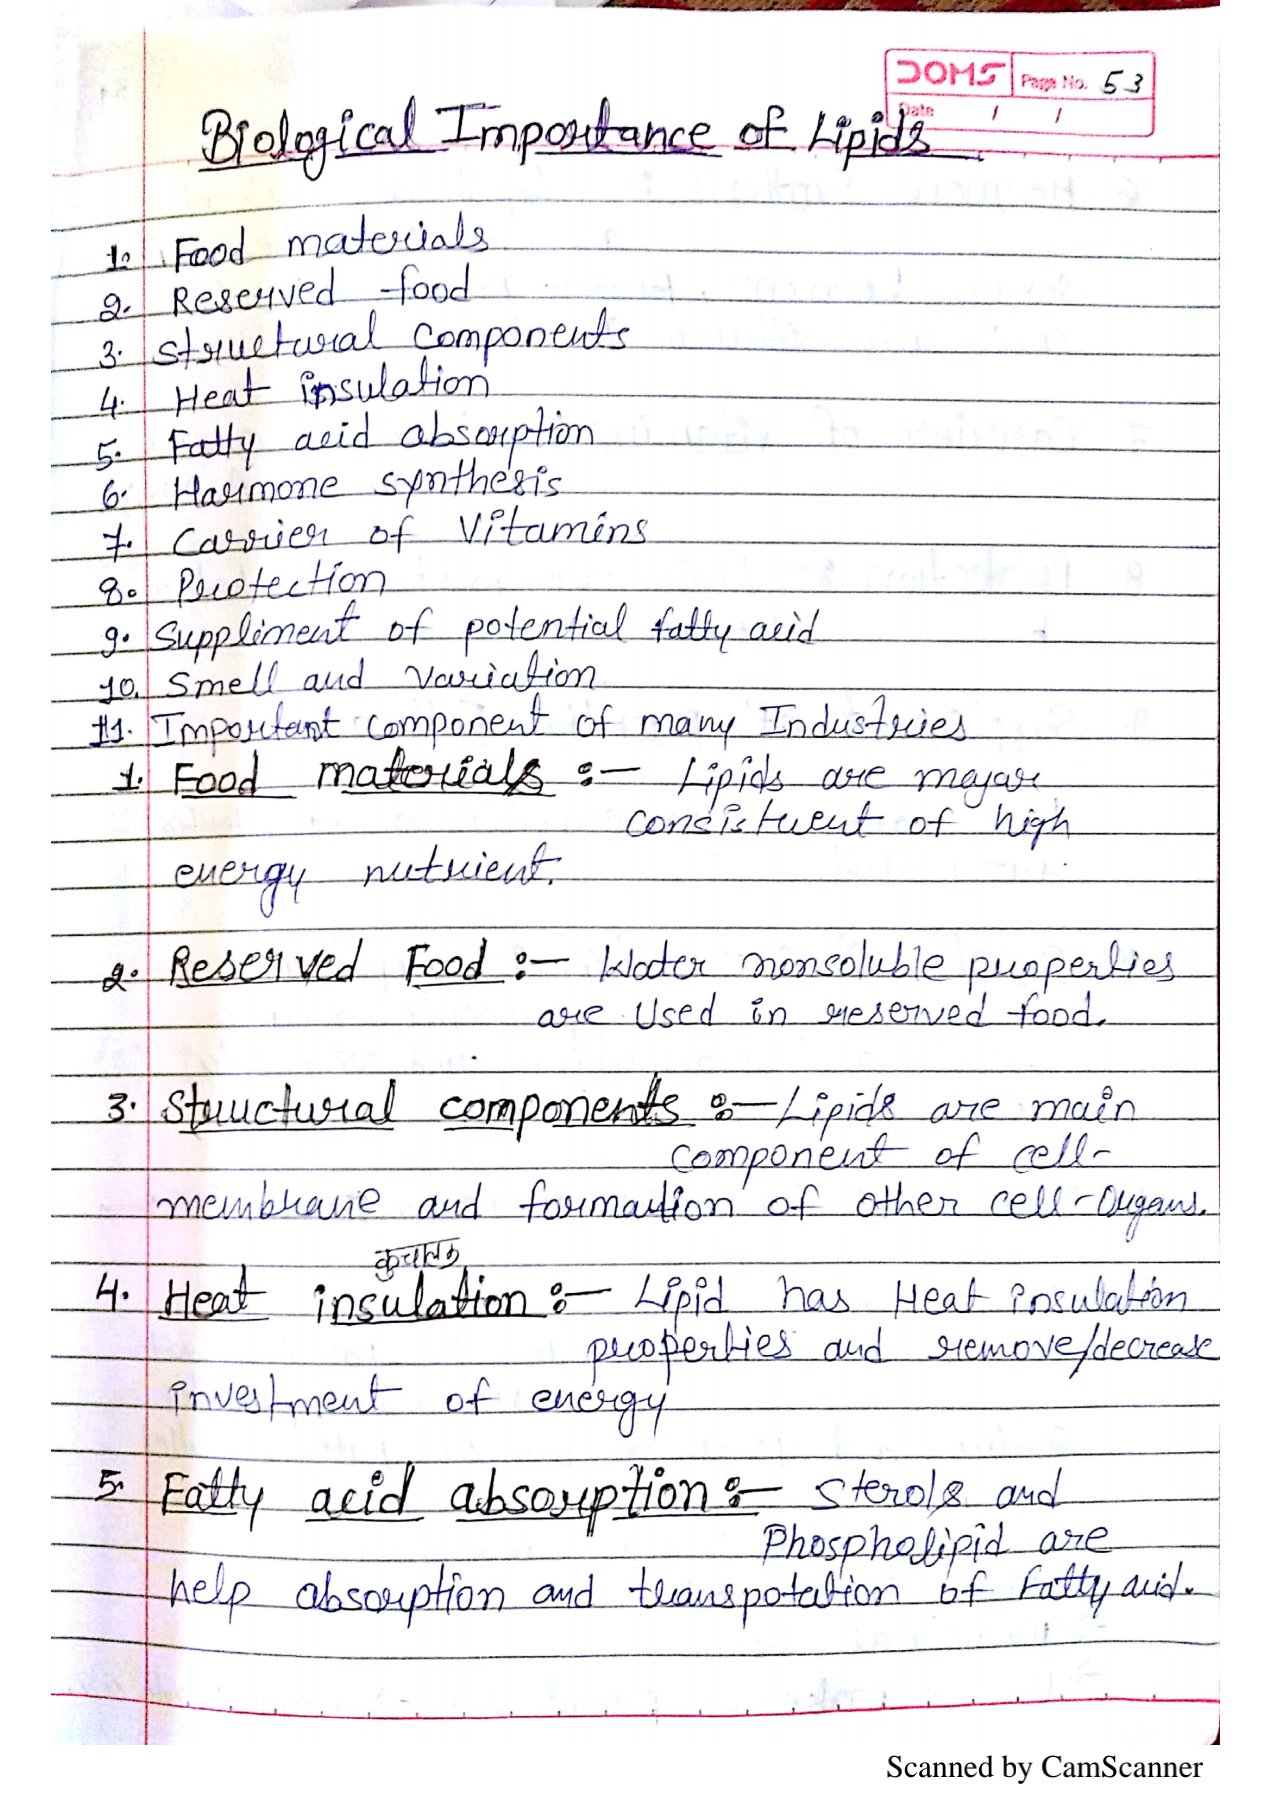 DOMS Page No. 53
Date / /
Biological Importance of Lipids
1. Food materials
2. Reserved food
3. Structural components
4. Heat insulation
5. Fatty acid absorption
6. Harmone synthesis
7. Carrier of Vitamins
8. Protection
9. Suppliment of potential fatty acid
10. Smell and variation
11. Important component of many Industries
1. Food materials :- Lipids are major
consistuent of high
energy nutrient.
2. Reserved Food :- Water nonsoluble properties
are Used in reserved food.
3. Structural components :- Lipids are main
component of cell-
membrane and formation of other cell-Organs.
कुचालक
4. Heat insulation :- Lipid has Heat insulation
properties and remove/decrease
investment of energy
5. Fatty acid absorption :- Sterols and
Phospholipid are
help absorption and transpotation of Fatty acid.
Scanned by CamScanner